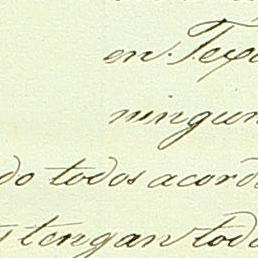 en Texa
ningun
do todos acorda
tengan todo